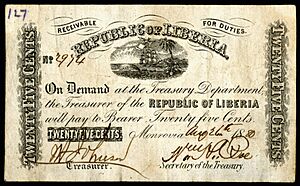 127
RECEIVABLE FOR DUTIES.
REPUBLIC OF LIBERIA
No
On Demand at the Treasury Department
the Treasurer of the REPUBLIC OF LIBERIA
will pay to Bearer Twenty five Cents
TWENTY FIVE CENTS. Monrovia Aug 26 1880
Treasurer. Secretary of the Treasury.
TWENTY FIVE CENTS
TWENTY FIVE CENTS